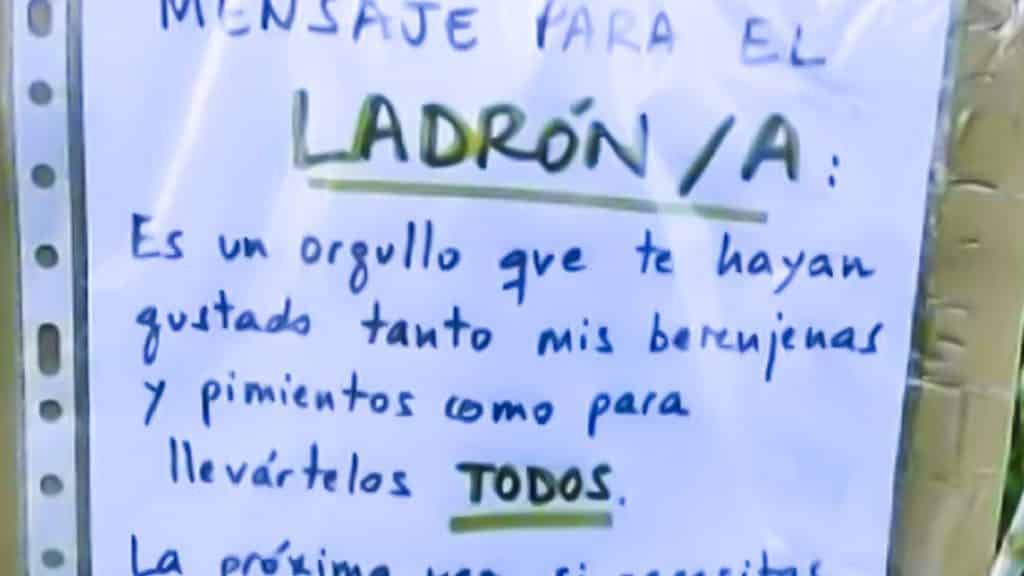 MENSAJE PARA EL
LADRÓN/A:
Es un orgullo que te hayan
gustado tanto mis berenjenas
y pimientos como para
llevártelos TODOS.
La próxima vez si necesitas